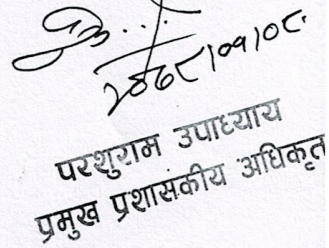 २०६८।०१।०८
परशुराम उपाध्याय
प्रमुख प्रशासकीय अधिकृत